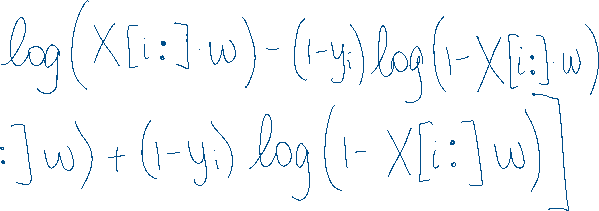 log(X[i:]·w) - (1-yi) log(1-X[i:]·w)
:]w) + (1-yi) log(1-X[i:]w)]